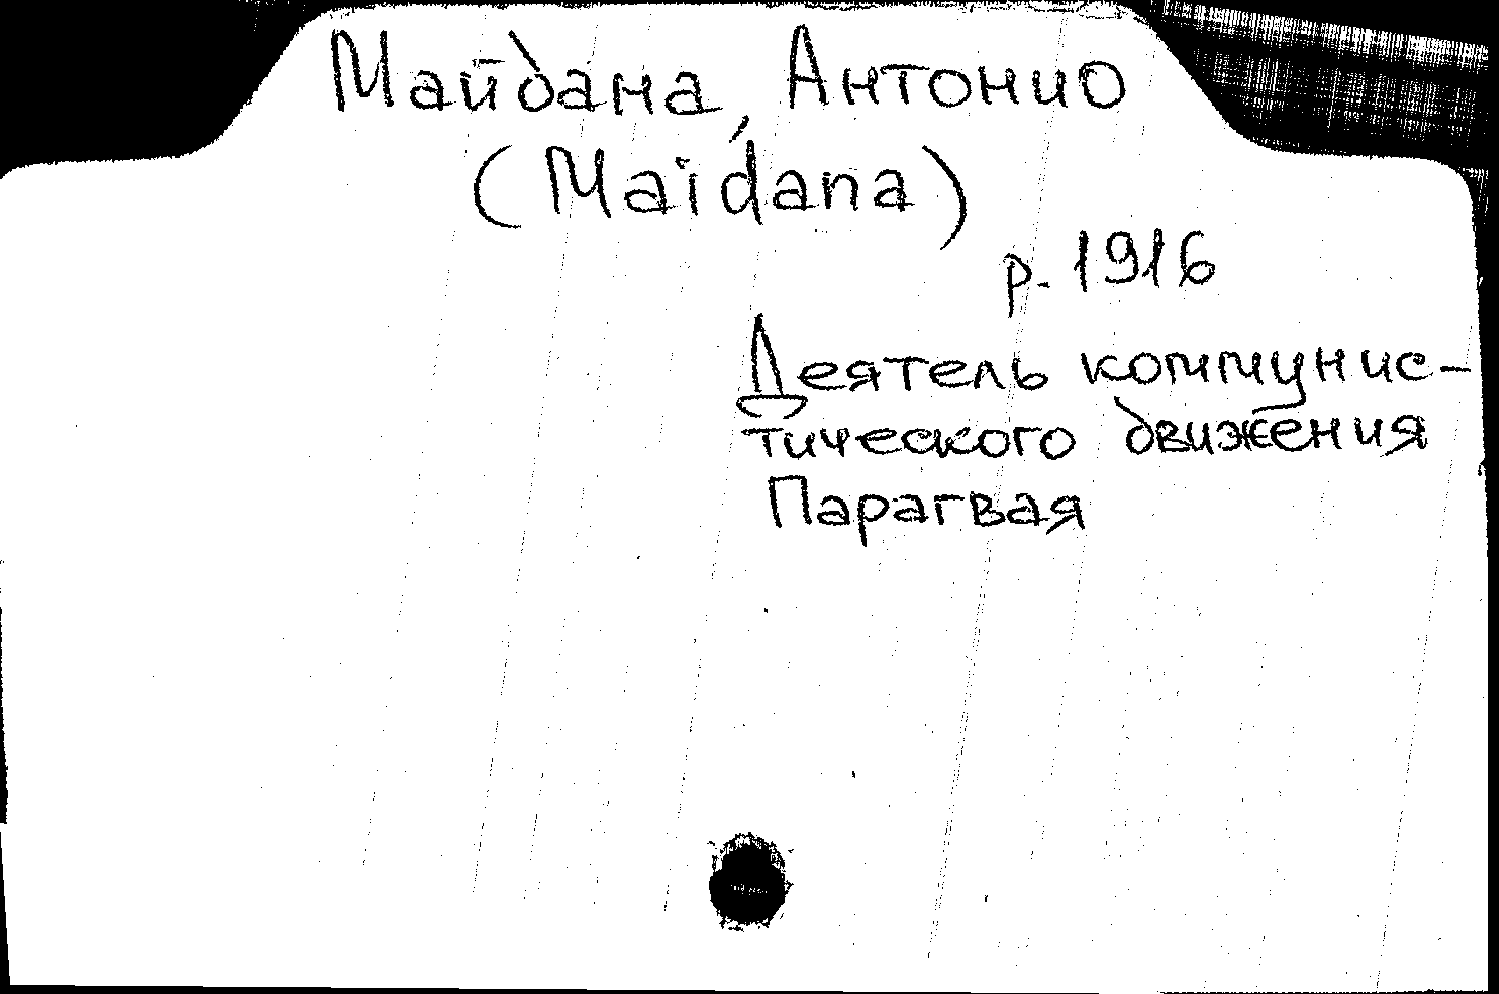 Майдана, Антонио
(Maidana)
р. 1916
Деятель коммунис-
тического движения
Парагвая